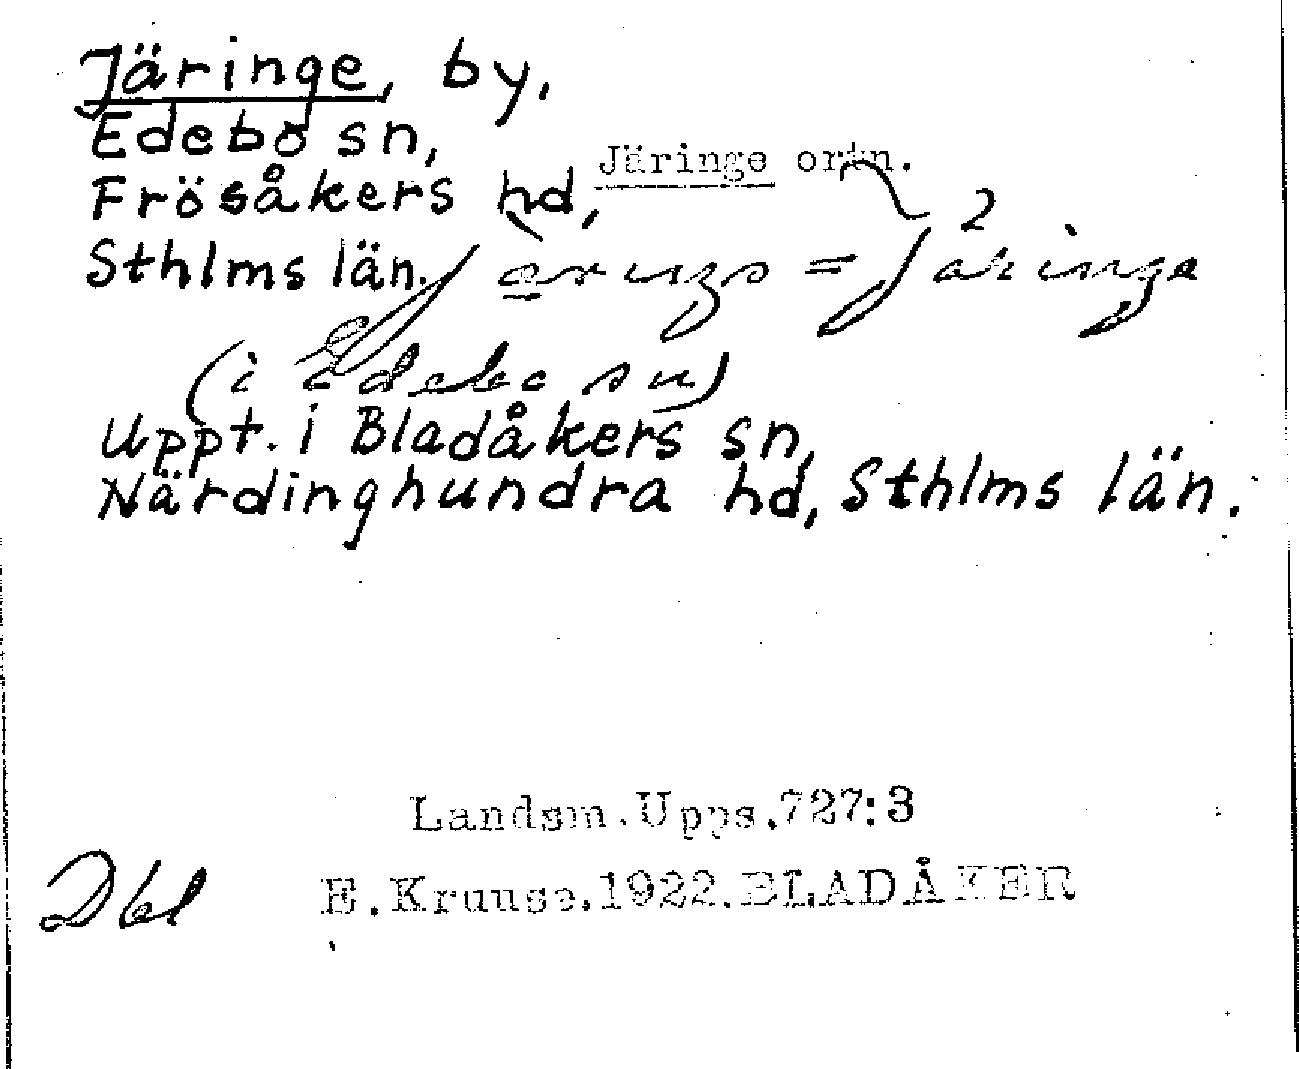 Järinge, by,
Edebo sn,
Järinge ortn.
Frösåkers hd,
Sthlms län.
(i Edebo sn)
Uppt. i Bladåkers sn,
Närdinghundra hd, Sthlms län.
Landsm. Upps. 727:3
Dbl
E. Kruuse. 1922. BLADÅKER